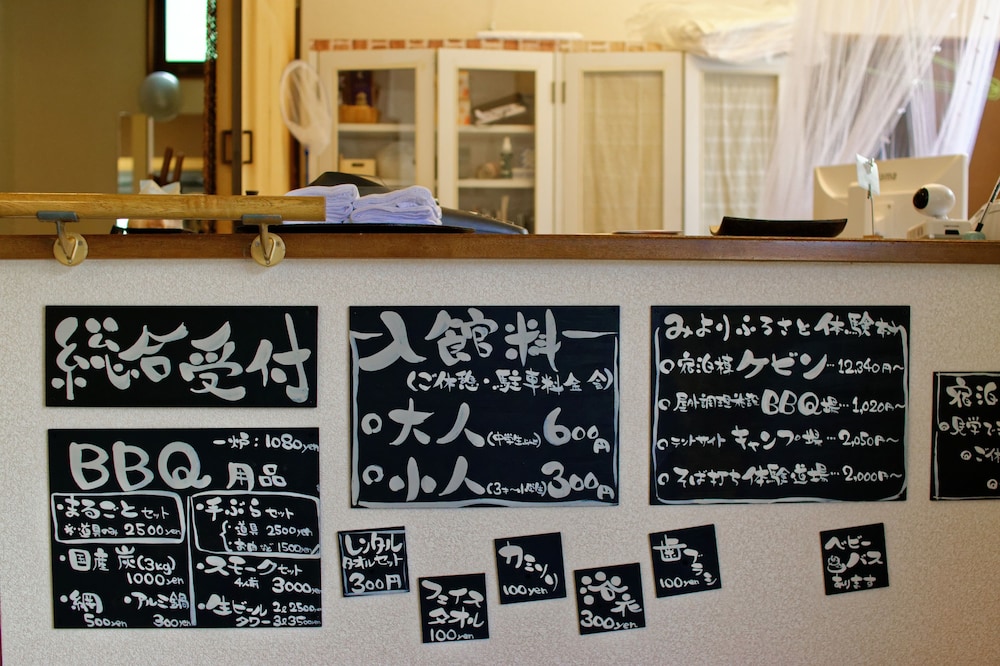 総合受付
一炉：1080yen
BBQ用品
・まるごとセット
※道具のみ 2500yen
・国産炭(3kg)
1000yen
・網 500yen
アルミ鍋 300yen
・手ぶらセット
・道具 2500yen
1500yen
・スモークセット
4人前 3000yen
・生ビールタワー
2ℓ 2500yen
3ℓ 35
入館料
(ご休憩・駐車料金含)
○大人 600円
○小人 300円
みよりふるさと体験村
○宿泊棟 ケビン…12,340円〜
○屋外調理施設 BBQ場…1,020円〜
○テントサイト キャンプ場…2,050円〜
○そば打ち体験道場…2,000円〜
宿泊
○見学で
○
レンタル
タオルセット
300円
フェイス
タオル
100yen
カミソリ
100yen
浴衣
300yen
歯ブラシ
100yen
ベビー
バス
あります